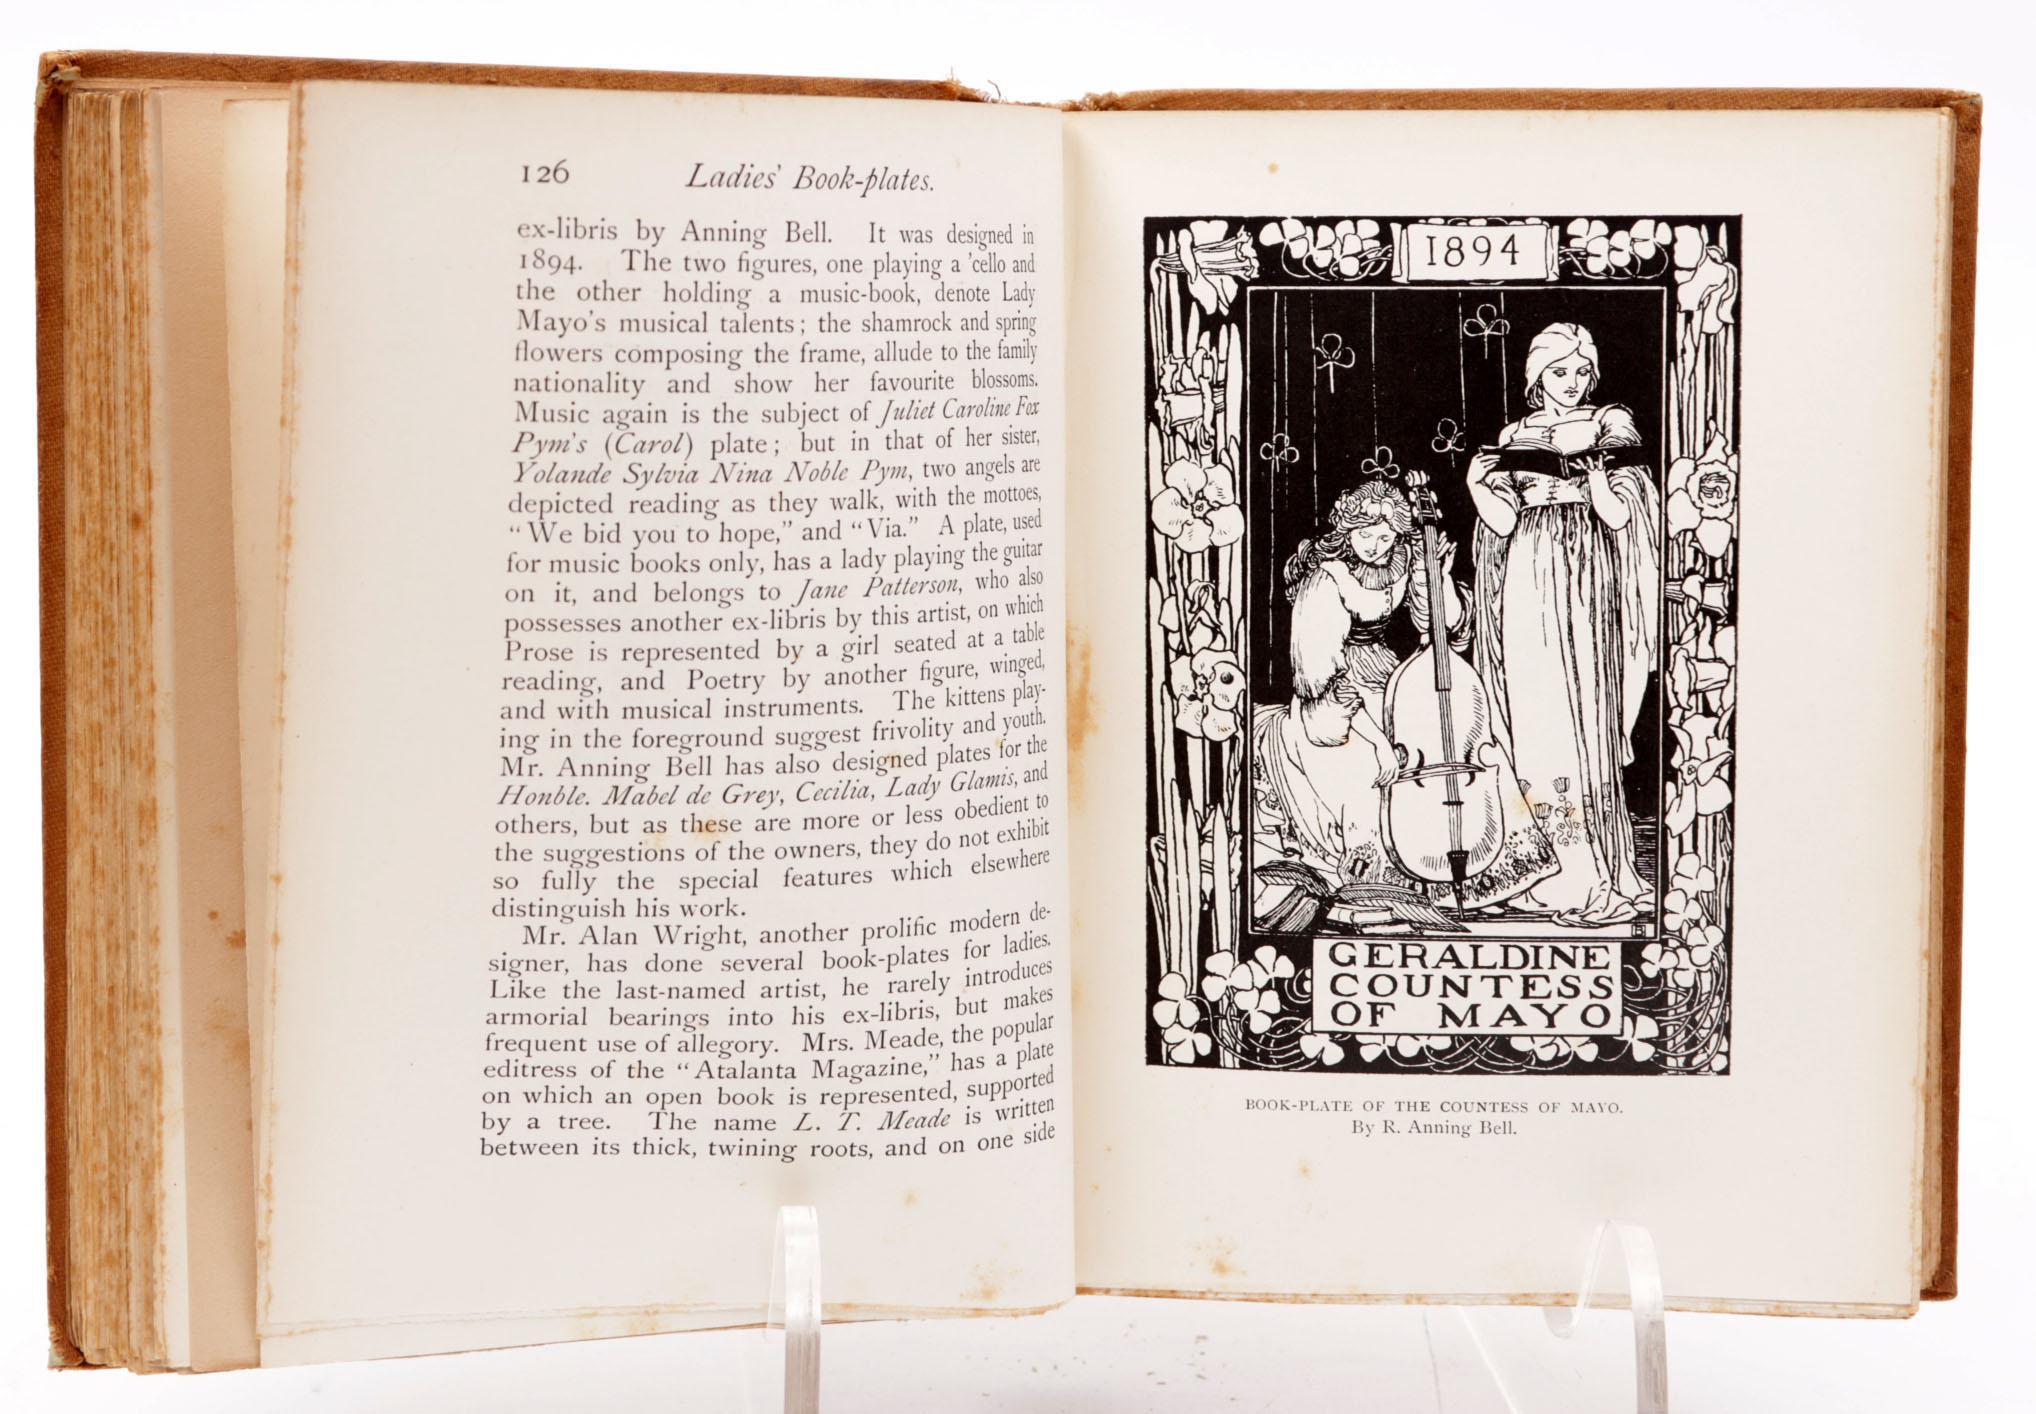 126 Ladies' Book-plates.
ex-libris by Anning Bell. It was designed in
1894. The two figures, one playing a 'cello and
the other holding a music-book, denote Lady
Mayo's musical talents; the shamrock and spring
flowers composing the frame, allude to the family
nationality and show her favourite blossoms.
Music again is the subject of Juliet Caroline Fox
Pym's (Carol) plate; but in that of her sister,
Yolande Sylvia Nina Noble Pym, two angels are
depicted reading as they walk, with the mottoes,
"We bid you to hope," and "Via." A plate, used
for music books only, has a lady playing the guitar
on it, and belongs to Jane Patterson, who also
possesses another ex-libris by this artist, on which
Prose is represented by a girl seated at a table
reading, and Poetry by another figure, winged,
and with musical instruments. The kittens play-
ing in the foreground suggest frivolity and youth.
Mr. Anning Bell has also designed plates for the
Honble. Mabel de Grey, Cecilia, Lady Glamis, and
others, but as these are more or less obedient to
the suggestions of the owners, they do not exhibit
so fully the special features which elsewhere
distinguish his work.
Mr. Alan Wright, another prolific modern de-
signer, has done several book-plates for ladies.
Like the last-named artist, he rarely introduces
armorial bearings into his ex-libris, but makes
frequent use of allegory. Mrs. Meade, the popular
editress of the "Atalanta Magazine," has a plate
on which an open book is represented, supported
by a tree. The name L. T. Meade is written
between its thick, twining roots, and on one side
1894
GERALDINE
COUNTESS
OF MAYO
BOOK-PLATE OF THE COUNTESS OF MAYO.
By R. Anning Bell.